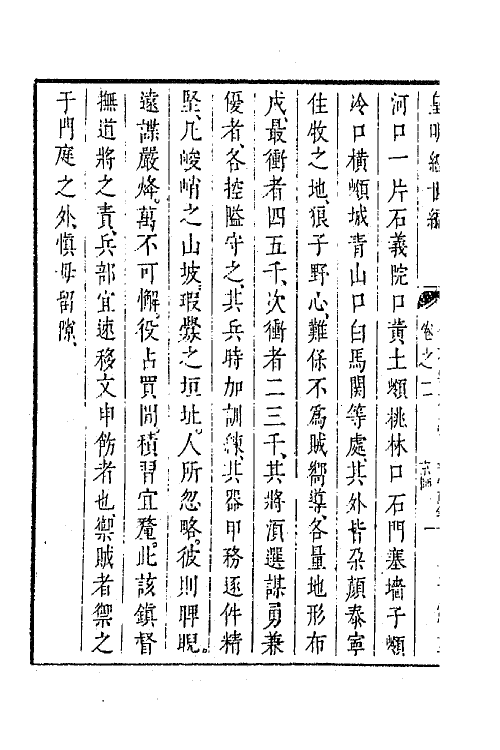 皇明經世編
卷之二
京師
一
河口一片石義院口黃土嶺桃林口石門塞墻子嶺
冷口橫嶺城青山口白馬関等處其外皆朶顏泰寧
住牧之地狼子野心難保不爲賊嚮導各量地形布
戍最衝者四五千次衝者二三千其將湏選謀勇兼
優者各控隘守之其兵時加訓練其器甲務逐件精
堅凢峻峭之山坡瑕釁之垣址人所忽略彼則睥睨
遠諜嚴烽萬不可懈役占買閒積習宜釐此該鎮督
撫道將之責兵部宜速移文申飭者也禦賊者禦之
于門庭之外慎毋留隙